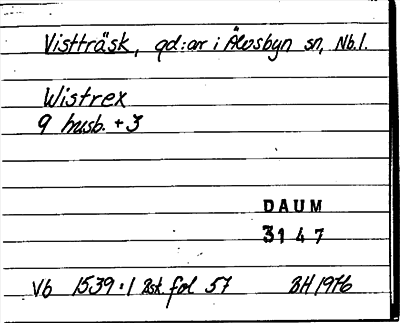 Vistträsk, gd:ar i Älvsbyn sn, Nb.l.
Wistrex
9 husb. + 3
DAUM
3147
Vb 1539:1 Rsk. fol 57 BH 1976